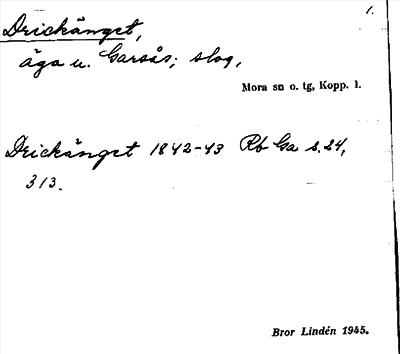 1.
Drickänget,
äga u. Garsås; slog,
Mora sn o. tg, Kopp. l.
Drickänget 1842-43 Rb Ga s. 24,
313.
Bror Lindén 1945.